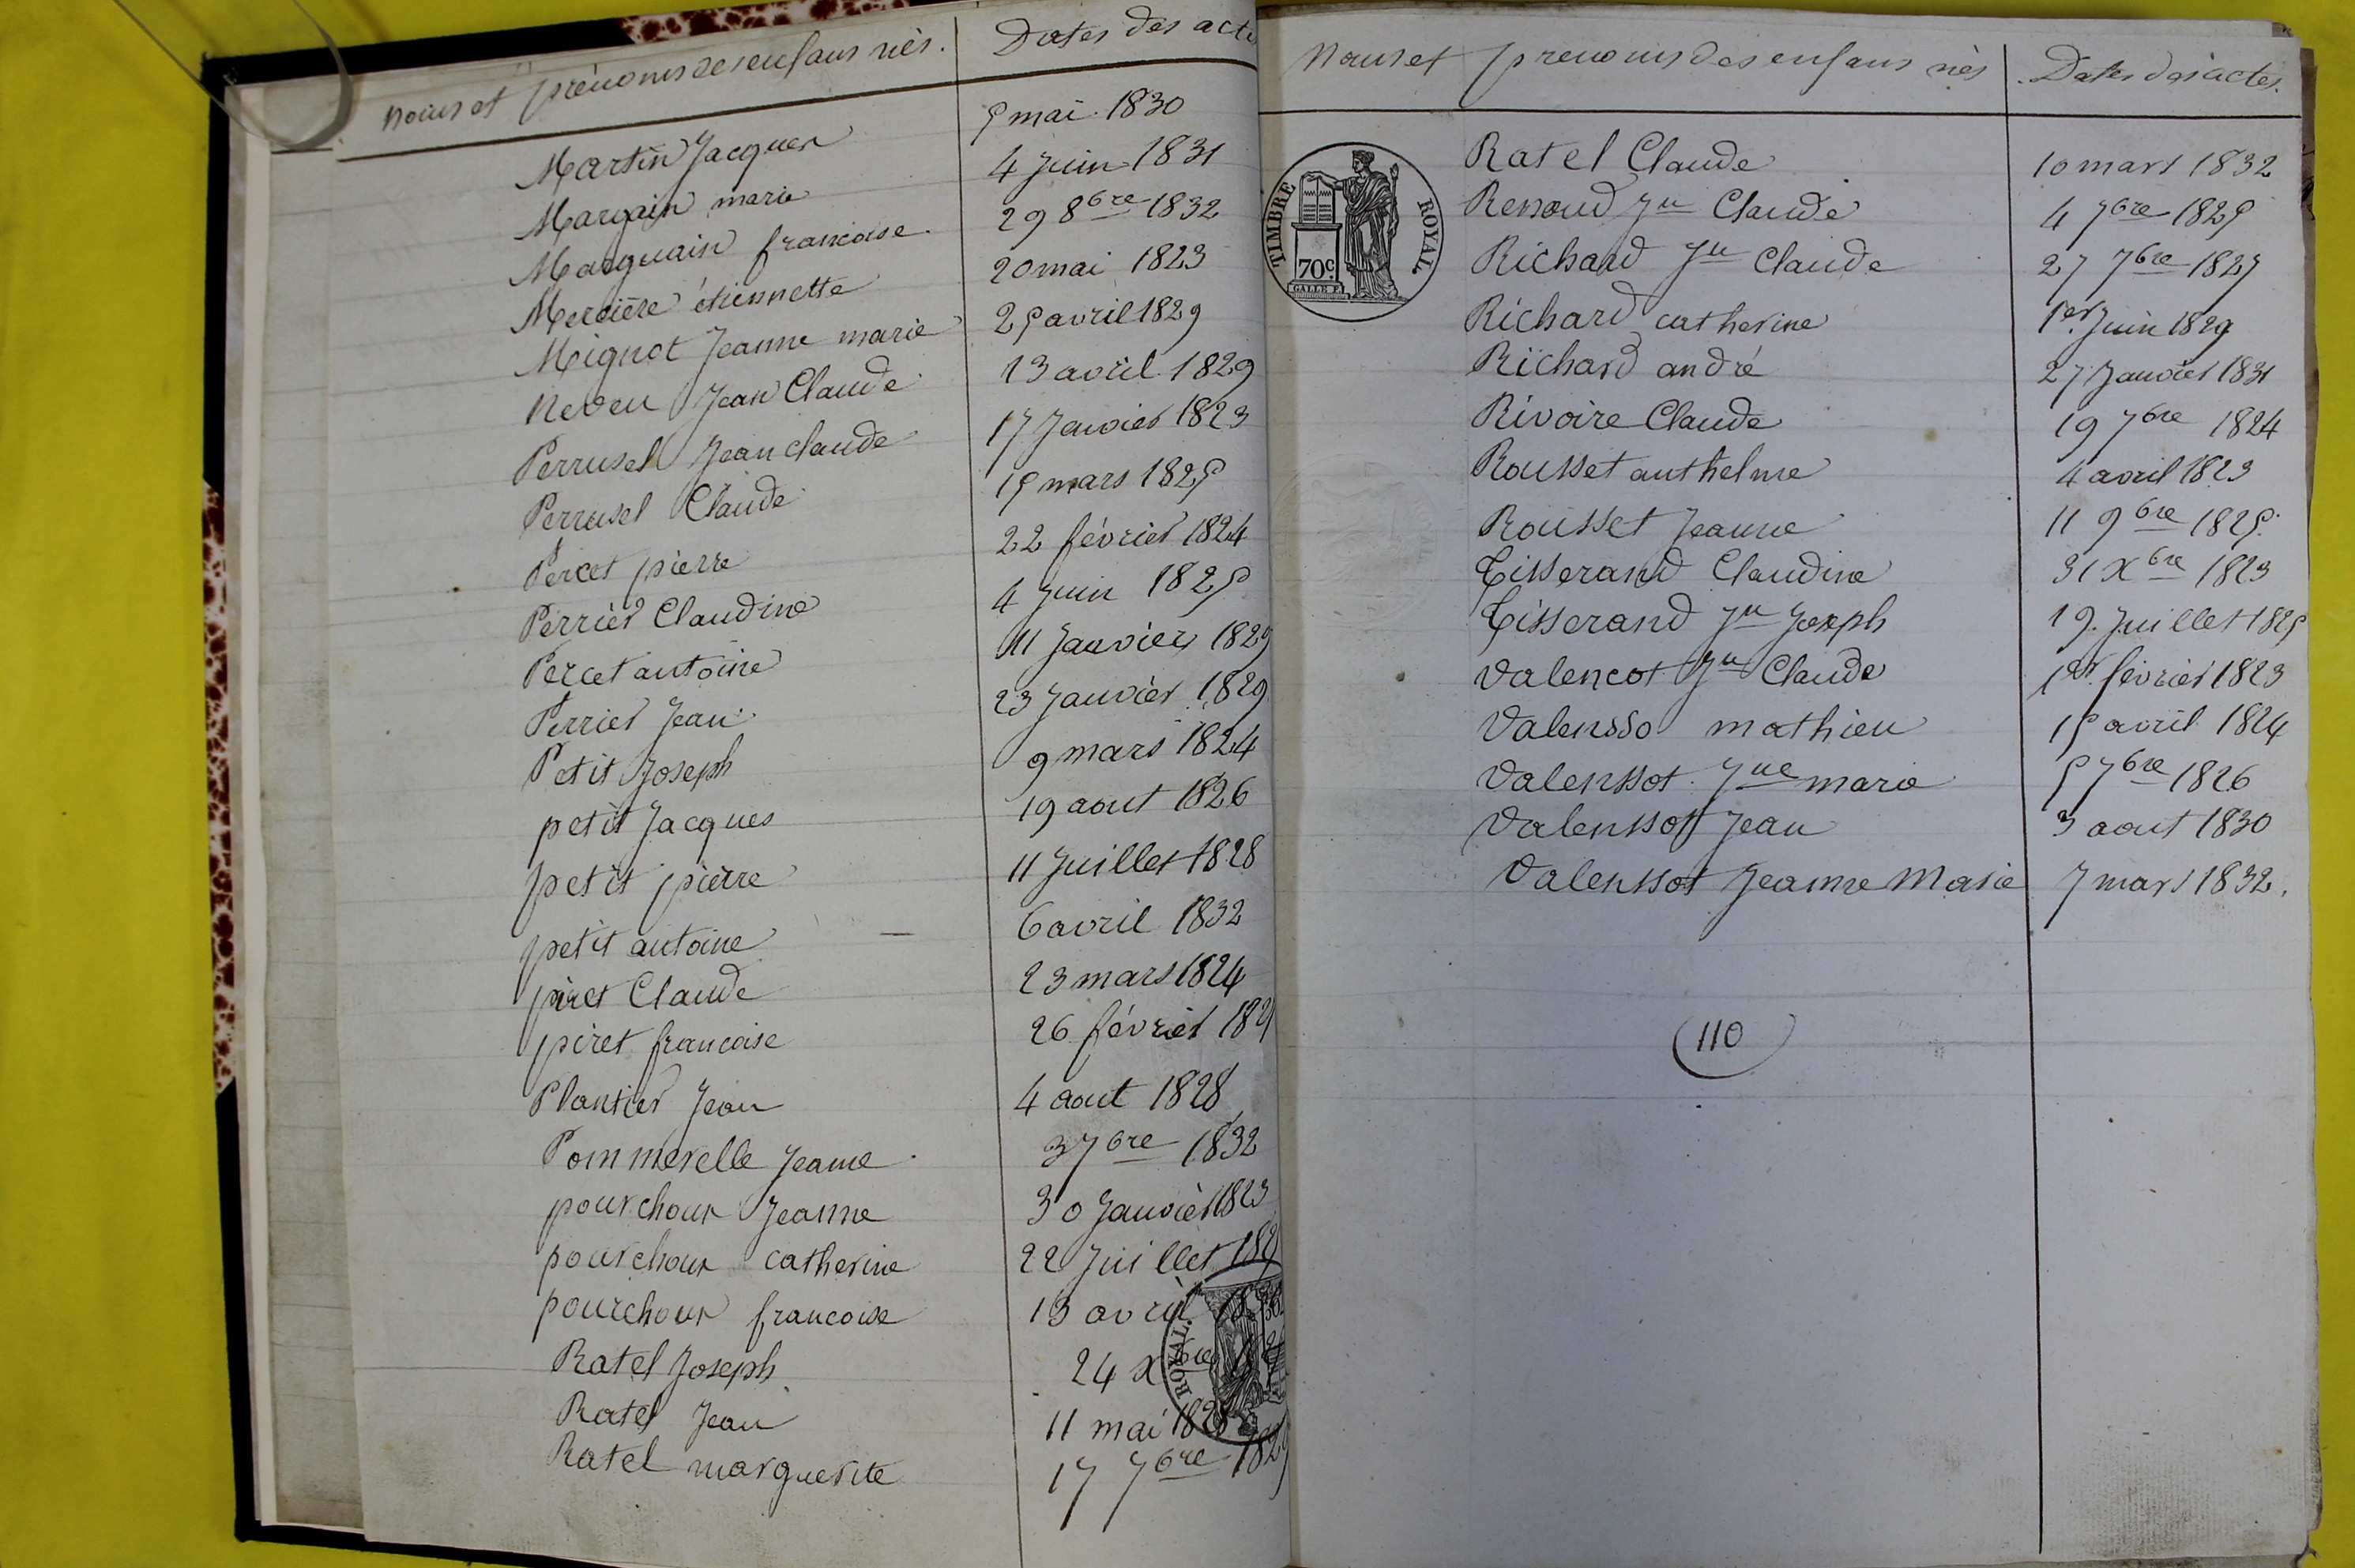 Noms et prénoms des enfans nés. Dates des acte
Martin Jacques 5 mai 1830
Margain marie 4 Juin 1831
Marguain francoise 29 8bre 1832
Mercière étiennette 20 mai 1823
Mignot Jeanne marie 25 avril 1829
Neveu Jean Claude 13 avril 1829
Perrusel Jean claude 17 Janvier 1823
Perrusel Claude 15 mars 1825
Percet pierre 22 février 1824
Perrier Claudine 4 Juin 1825
Percet antoine 11 Janvier 1829
Perrier Jean 23 Janvier 1829
Petit Joseph 9 mars 1824
petit Jacques 19 aout 1826
petit pierre 11 Juillet 1828
petit antoine 6 avril 1832
piret Claude 23 mars 1824
piret francoise 26 février
Plantier Jean 4 aout 1828
Pommerelle Jeanne 3 7bre 1832
pourchoux Jeanne 30 Janvier 1823
pourchoux catherine 22 Juillet
pourchoux francoise 13 avril
Ratel Joseph 24 Xbre
Ratel Jean 11 mai
Ratel marguerite 17 7bre 1829
ROYAL
Noms et prenoms des enfans nés Dates des actes.
TIMBRE ROYAL
70c.
GALLE F.
Ratel Claude 10 mars 1832
Renoud Jn Claude 4 7bre 1825
Richard Jn Claude 27 7bre 1827
Richard catherine 1er Juin 1829
Richard andré 27 Janvier 1831
Rivoire Claude 19 7bre 1824
Rousset anthelme 4 avril 1823
Rousset Jeanne 11 9bre 1825
Tisserand Claudine 31 Xbre 1823
Tisserand Jn Joseph 19 Juillet 1825
Valencot Jn Claude 1er février 1823
Valensso mathieu 15 avril 1824
Valenssot Jne marie 5 7bre 1826
Valenssot Jean 3 aout 1830
Valenssot Jeanne Marie 7 mars 1832.
(110)